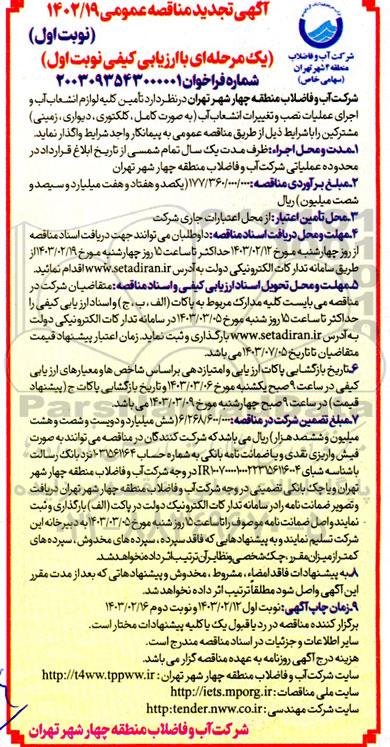 آگهی تجدید مناقصه عمومی ۱۴۰۲/۱۹
(نوبت اول)
(یک مرحله‌ای با ارزیابی کیفی نوبت اول)
شماره فراخوان ۲۰۰۳۰۹۳۵۴۳۰۰۰۰۰۱
شرکت آب و فاضلاب
منطقه ۴ شهر تهران
(سهامی خاص)
شرکت آب و فاضلاب منطقه چهار شهر تهران در نظر دارد تأمین کلیه لوازم انشعاب آب و
اجرای عملیات نصب و تغییرات انشعاب آب (به صورت کامل، کلکتوری، دیواری، زمینی)
مشترکین را با شرایط ذیل از طریق مناقصه عمومی به پیمانکار واجد شرایط واگذار نماید.
۱.مدت و محل اجراء: ظرف مدت یک سال تمام شمسی از تاریخ ابلاغ قرارداد در
محدوده عملیاتی شرکت آب و فاضلاب منطقه چهار شهر تهران
۲.مبلغ برآوردی مناقصه: ۱۷۷/۳۶۰/۰۰۰/۰۰۰ (یکصد و هفتاد و هفت میلیارد و سیصد و
شصت میلیون) ریال
۳.محل تأمین اعتبار: از محل اعتبارات جاری شرکت
۴.مهلت و محل دریافت اسناد مناقصه: داوطلبان می توانند جهت دریافت اسناد مناقصه
از روز چهارشنبه مورخ ۱۴۰۳/۰۲/۱۲ حداکثر تا ساعت ۱۵ روز چهارشنبه مورخ ۱۴۰۳/۰۲/۱۹ از
طریق سامانه تدارکات الکترونیکی دولت به آدرس www.setadiran.ir اقدام نمائید.
۵.مهلت و محل تحویل اسناد ارزیابی کیفی و اسناد مناقصه: متقاضیان شرکت در
مناقصه می بایست کلیه مدارک مربوط به پاکات (الف، ب، ج) و اسناد ارزیابی کیفی را
حداکثر تا ساعت ۱۵ روز شنبه مورخ ۱۴۰۳/۰۳/۰۵ در سامانه تدارکات الکترونیکی دولت
به آدرس www.setadiran.ir بارگذاری و ثبت نماید. زمان اعتبار پیشنهاد قیمت
متقاضیان تا تاریخ ۱۴۰۳/۰۷/۰۵ می باشد.
۶.تاریخ بازگشایی پاکات ارزیابی و امتیازدهی بر اساس شاخص ها و معیارهای ارزیابی
کیفی در ساعت ۹ صبح یکشنبه مورخ ۱۴۰۳/۰۳/۰۶ و تاریخ بازگشایی پاکات ج (پیشنهاد
قیمت) در ساعت ۹ صبح چهارشنبه مورخ ۱۴۰۳/۰۳/۰۹ می باشد.
۷.مبلغ تضمین شرکت در مناقصه: ۶/۲۶۸/۶۰۰/۰۰۰ (شش میلیارد و دویست و شصت و هشت
میلیون و ششصد هزار) ریال می باشد که شرکت کنندگان در مناقصه می توانند به صورت
فیش واریزی نقدی و یا ضمانت نامه بانکی به شماره حساب ۰۳۵۶۱۱۶۴ نزد بانک رسالت
با شناسه شبای در وجه شرکت آب و فاضلاب منطقه چهار شهر
تهران و یا چک بانکی تضمینی در وجه شرکت آب و فاضلاب منطقه چهار شهر تهران دریافت
و تصویر ضمانت نامه را در سامانه تدارکات الکترونیک دولت در پاکت (الف) بارگذاری و ثبت
نمایند و اصل ضمانت نامه موصوف را تا ساعت ۱۵ روز شنبه مورخ ۱۴۰۳/۰۳/۰۵ به دبیرخانه این
شرکت تسلیم نمایند و به پیشنهادهایی که فاقد سپرده، سپرده های مخدوش، سپرده های
کمتر از میزان مقرر، چک شخصی و نظایر آن ترتیب اثر داده نخواهد شد.
۸.به پیشنهادات فاقد امضاء، مشروط، مخدوش و پیشنهادهائی که بعد از مدت مقرر
این آگهی واصل شود مطلقاً ترتیب اثر داده نخواهد شد.
۹.زمان چاپ آگهی: نوبت اول ۱۴۰۳/۰۲/۱۲ و نوبت دوم ۱۴۰۳/۰۲/۱۶
برگزار کننده مناقصه در رد یا قبول یک یا کلیه پیشنهادات مختار است.
سایر اطلاعات و جزئیات در اسناد مناقصه مندرج است.
هزینه درج آگهی روزنامه به عهده مناقصه گزار می باشد.
سایت شرکت آب و فاضلاب منطقه چهار شهر تهران: http://t4ww.tppww.ir
سایت ملی مناقصات: http://iets.mporg.ir
سایت شرکت مهندسی: http:tender.nww.co.ir
شرکت آب و فاضلاب منطقه چهار شهر تهران